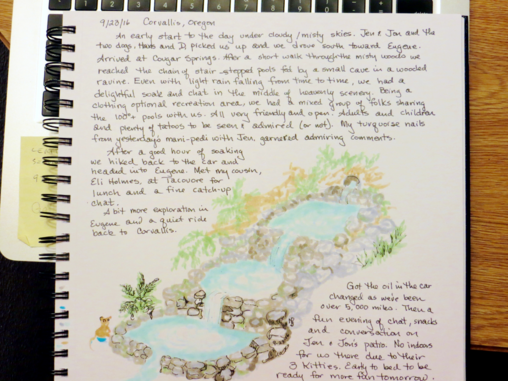 9/23/16 Corvallis, Oregon
An early start to the day under cloudy/misty skies. Jen & Jon and the
two dogs, picked us up and we drove south toward Eugene.
Arrived at Cougar Springs. After a short walk through the misty woods we
reached the chain of stair stepped pools fed by a small cave in a wooded
ravine. Even with light rain falling from time to time, we had a
delightful soak and chat in the middle of heavenly scenery. Being a
clothing optional recreation area, we had a mixed group of folks sharing
the 100°+ pools with us. All very friendly and open. Adults and children
and plenty of tattoos to be seen & admired (or not). My turquoise nails
from yesterday's mani-pedi with Jen, garnered admiring comments.
After a good hour of soaking
we hiked back to the car and
headed into Eugene. Met my cousin,
Eli Holmes, at Tacovore for
lunch and a fine catch-up
chat.
A bit more exploration in
Eugene and a quiet ride
back to Corvallis.
Got the oil in the car
changed as we've been
over 5,000 miles. Then a
fun evening of chat, snacks
and conversation on
Jen & Jon's patio. No indoors
for us there due to their
3 kitties. Early to bed to be
ready for more fun tomorrow.